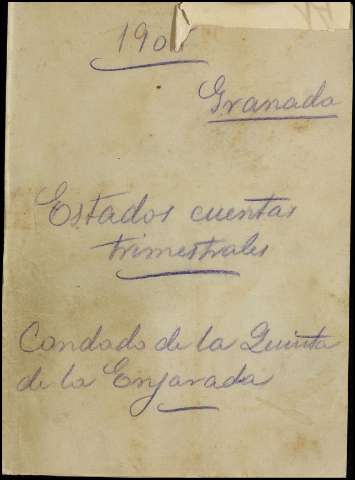 Granada
Estados cuentas
trimestrales
Condado de la Quinta
de la Enjarada